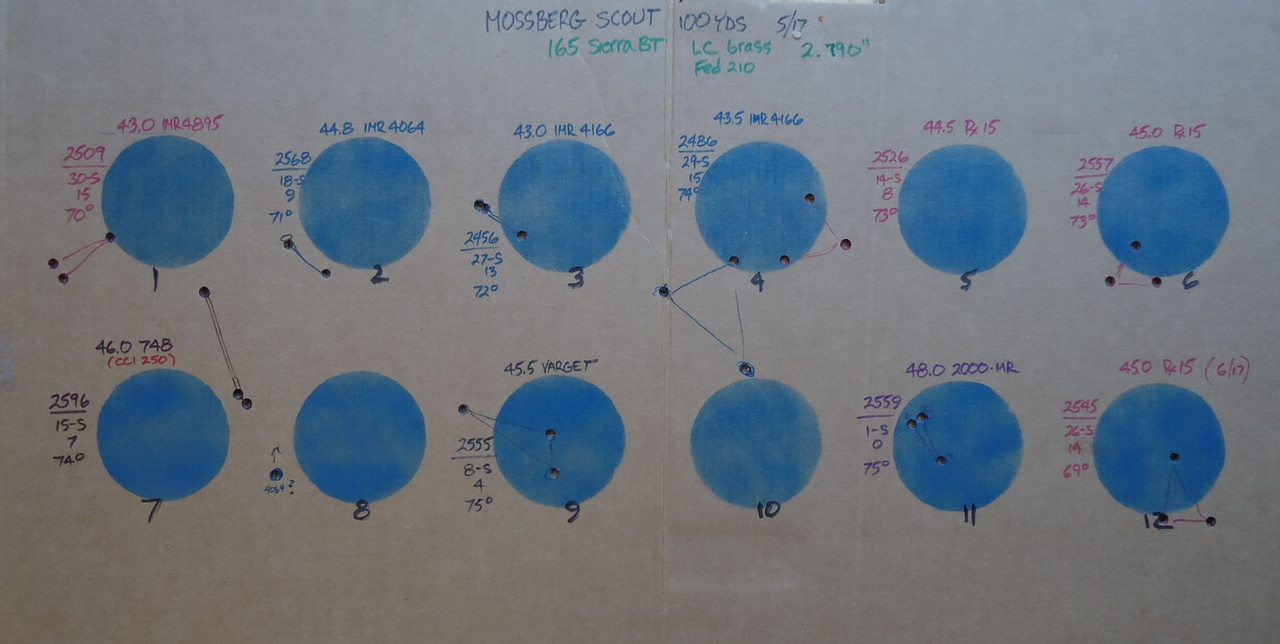 MOSSBERG SCOUT 100 YDS 5/17
165 Sierra BT LC brass 2.790"
Fed 210
43.0 IMR 4895
2509
30-S
15
70°
1
44.8 IMR 4064
2568
18-S
9
71°
2
43.0 IMR 4166
2456
27-S
13
72°
3
43.5 IMR 4166
2486
29-S
15
74°
4
44.5 Rx15
2526
14-S
8
73°
5
45.0 Rx15
2557
26-S
14
73°
6
46.0 748
(CCI 250)
2596
15-S
7
74°
7
4064?
8
45.5 VARGET
2555
8-S
4
75°
9
10
48.0 2000-MR
2559
1-S
0
75°
11
45.0 Rx15 (6/17)
2545
26-S
14
69°
12